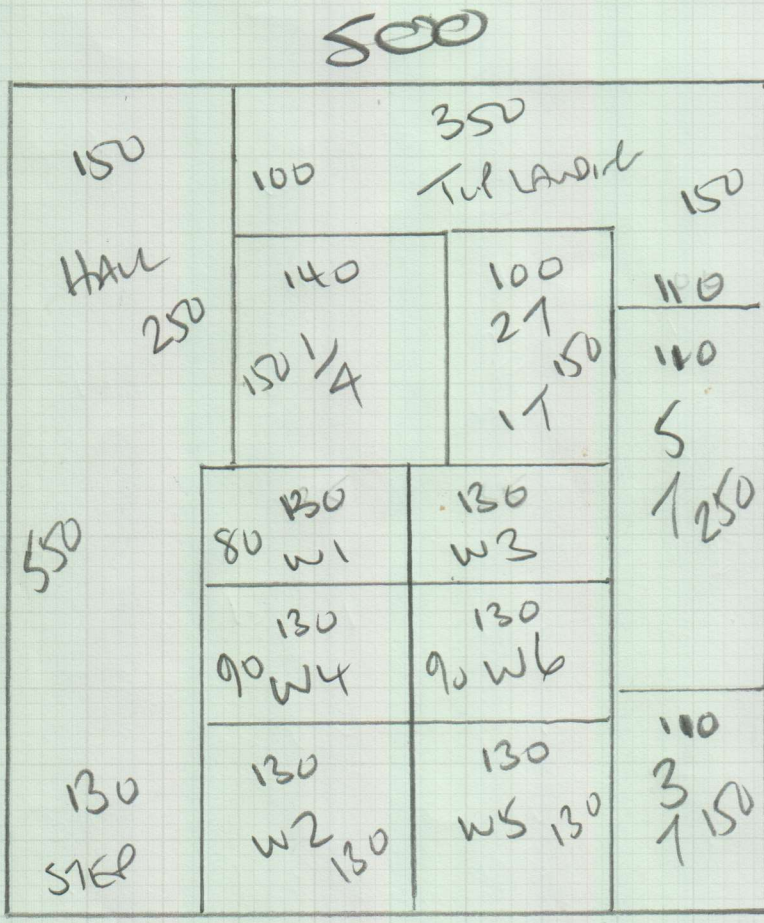 500
150
HALL
250
550
130
STEP
350
100
TOP LANDING
150
110
140
150 1/4
100
2T
150
1T
110
5
T 250
130
80 W1
130
W3
130
90 W4
130
90 W6
130
W2 130
130
W5 130
110
3
T 150